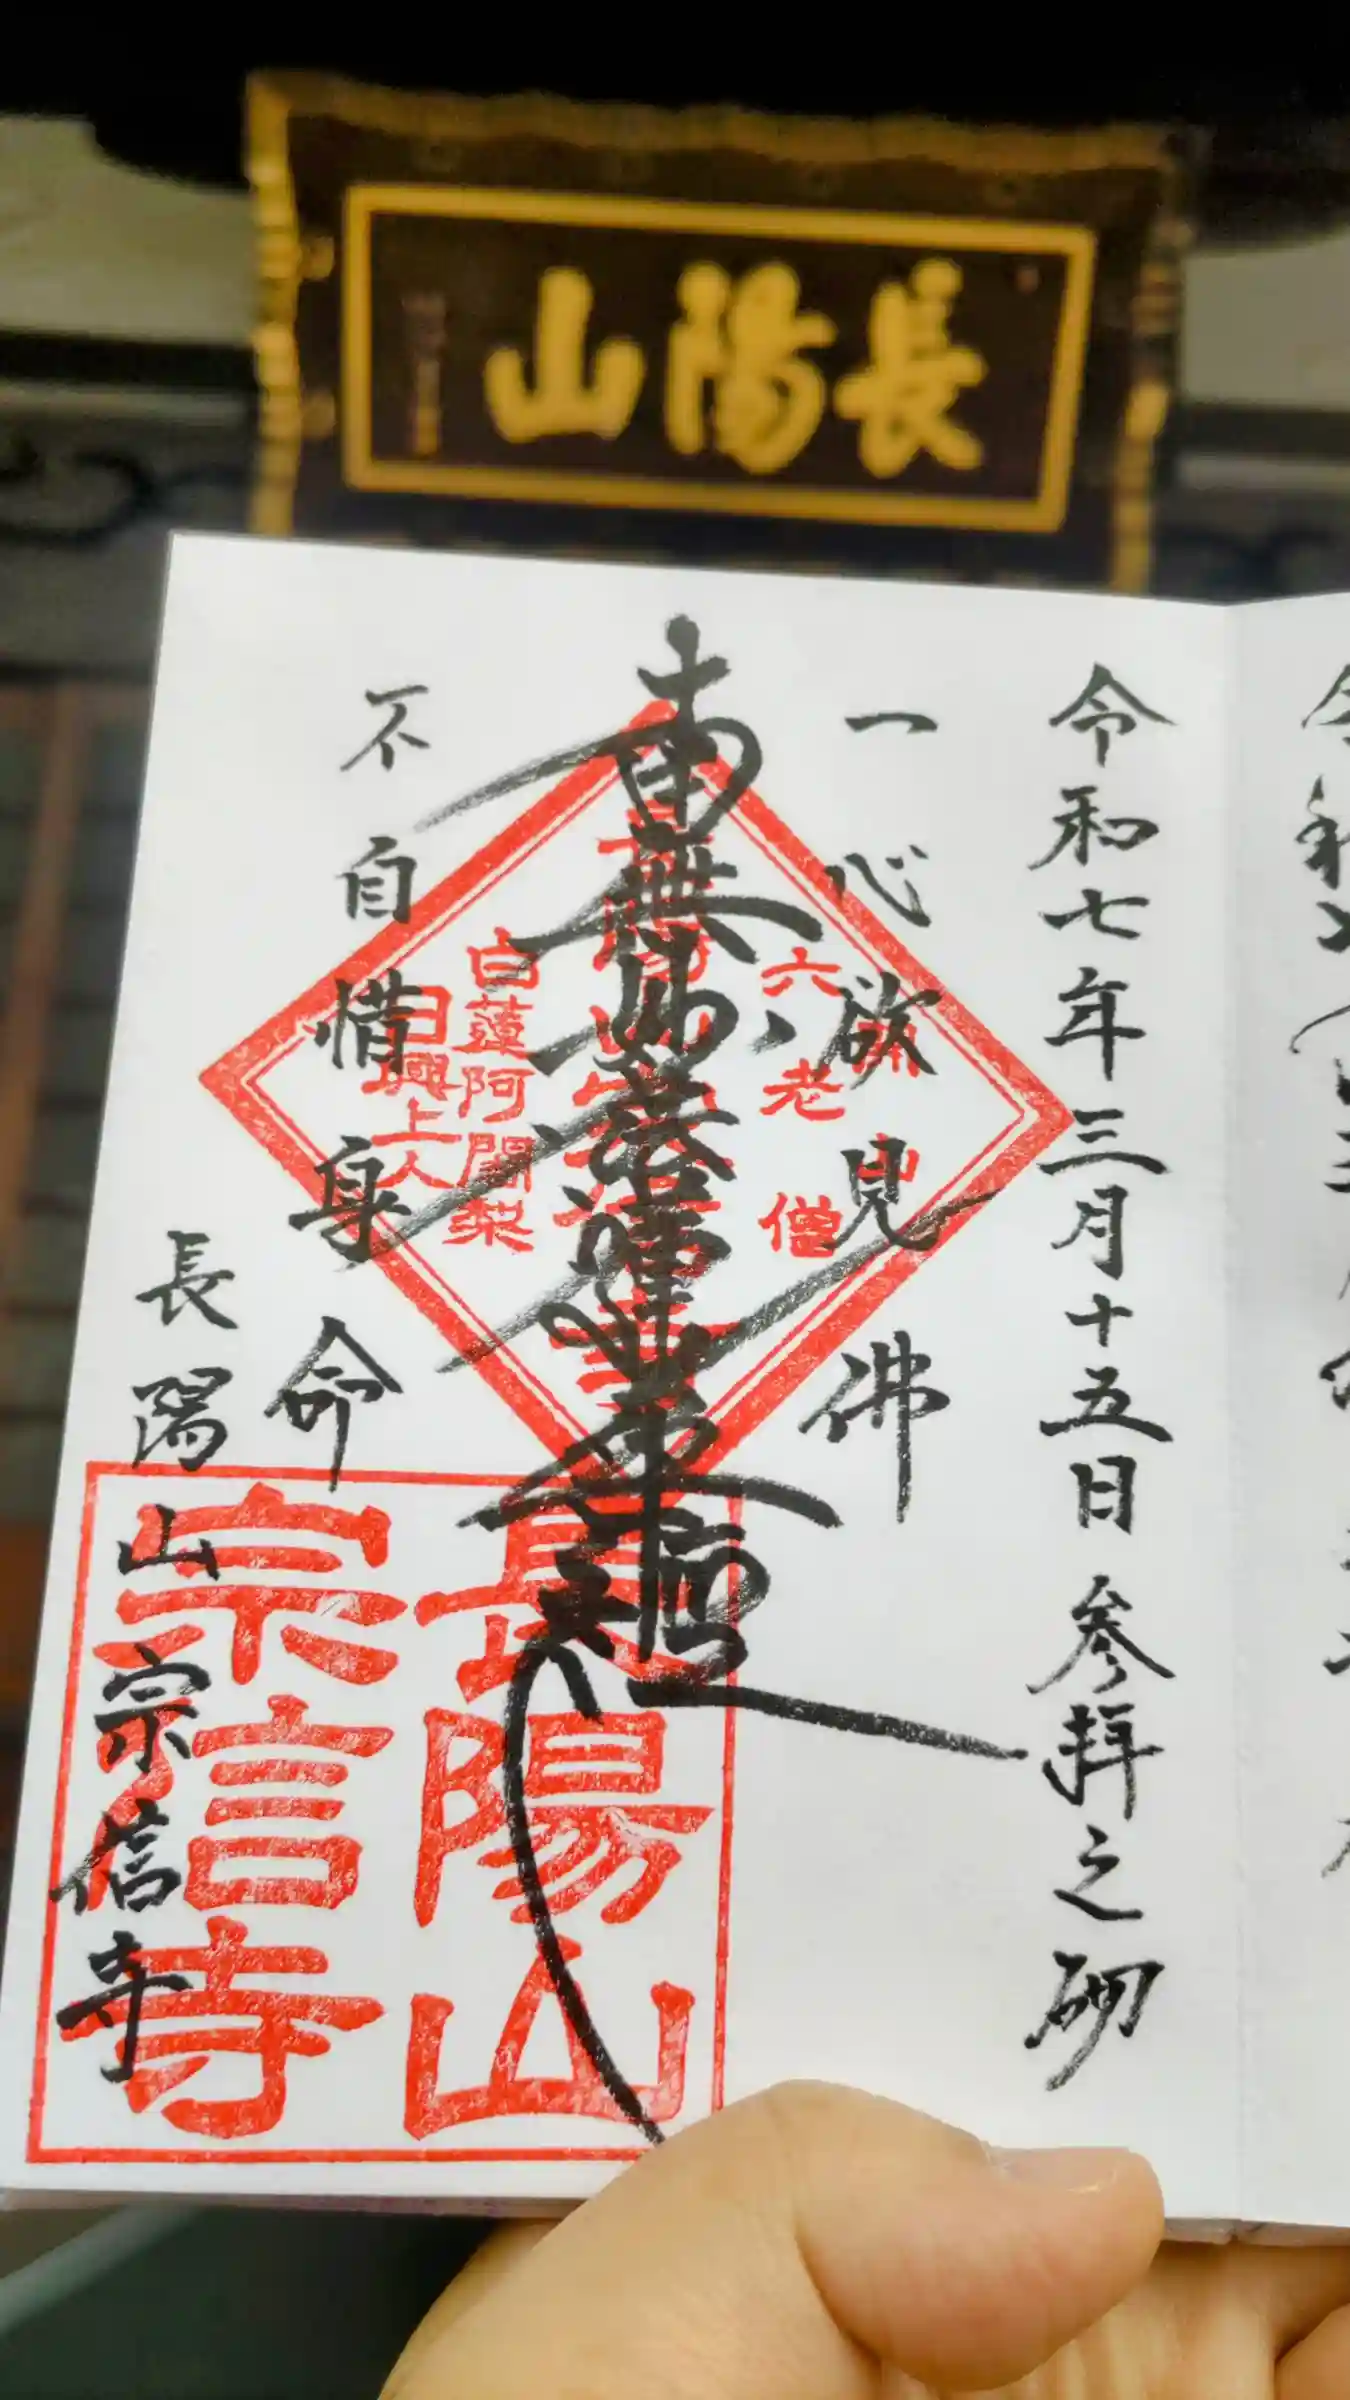 長陽山
令和七年三月十五日参拝之砌
一心欲見佛
南無妙法蓮華経
不自惜身命
長陽山宗信寺
六老僧
白蓮阿闍梨
日興上人
長陽山
宗信寺